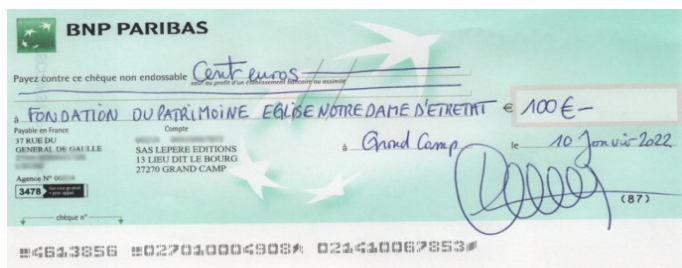 BNP PARIBAS
Payez contre ce chèque non endossable Cent euros
sauf au profit d'un établissement bancaire ou assimilé
à FONDATION DU PATRIMOINE EGLISE NOTRE DAME D'ETRETAT € 100 €-
Payable en France
37 RUE DU
GENERAL DE GAULLE
Agence N°
3478 Service gratuit + prix appel
Compte
SAS LEPERE EDITIONS
13 LIEU DIT LE BOURG
27270 GRAND CAMP
à Grand Camp le 10 Janvier 2022
(87)
chèque n°
4613856 027010004908 021410067853